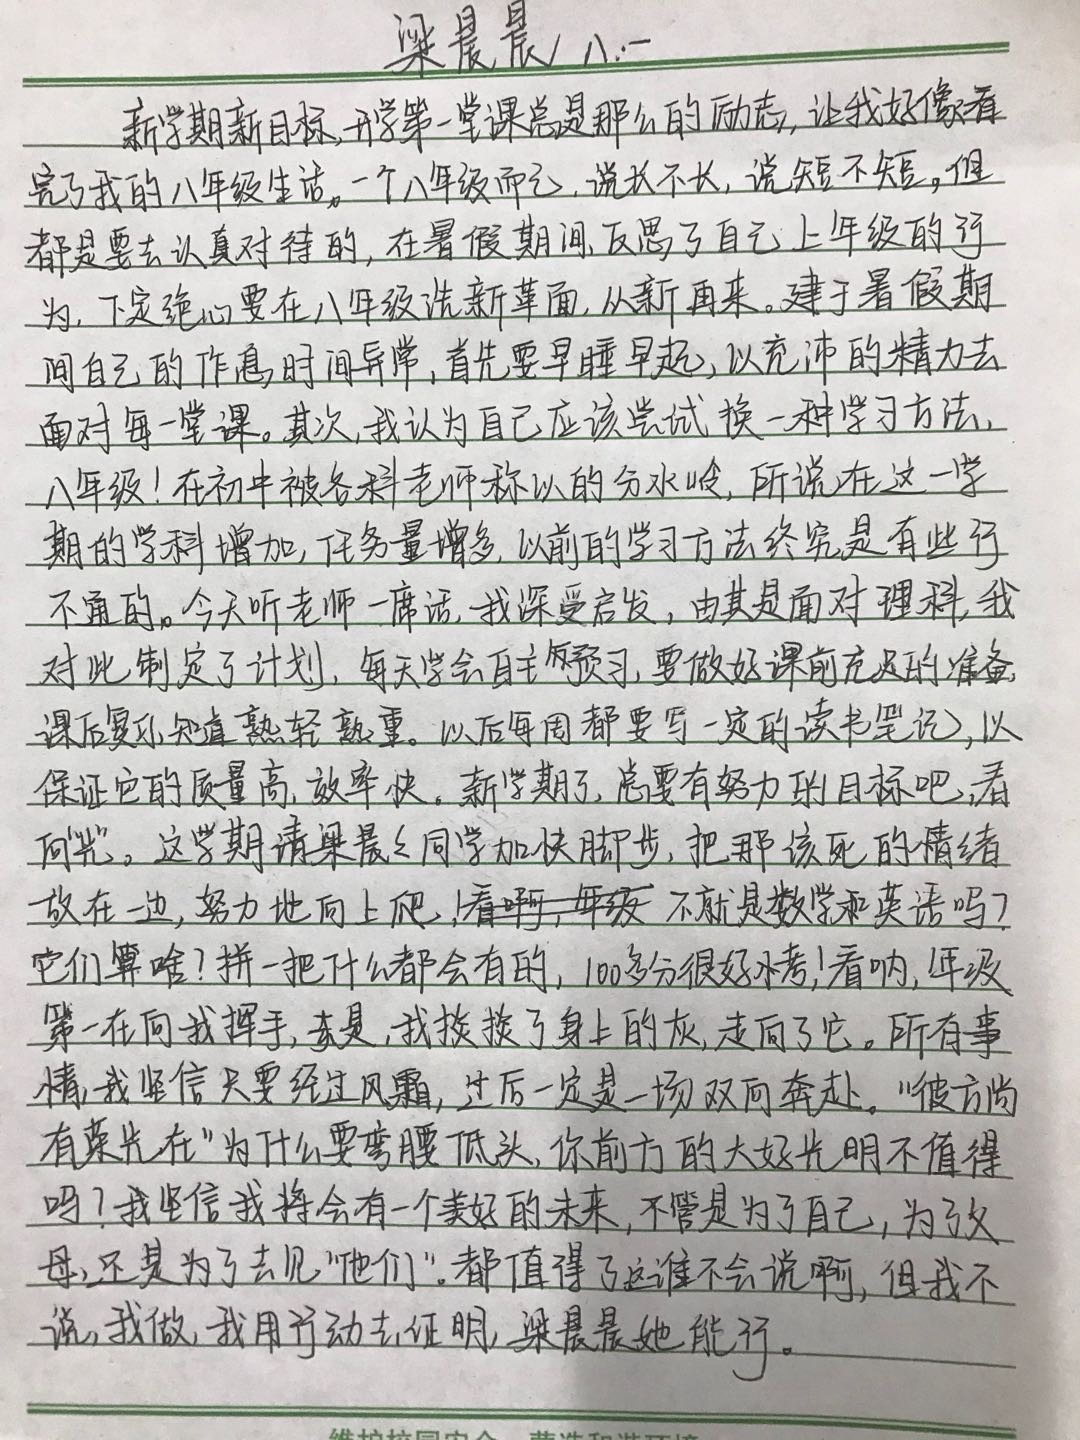 梁晨晨 八.一
新学期新目标,开学第一堂课总是那么的励志,让我好像看
完了我的八年级生活。一个八年级而已,说长不长,说短不短。但
都是要去认真对待的,在暑假期间,反思了自己上年级的行
为,下定绝心要在八年级洗新革面,从新再来。建于暑假期
间自己的作息时间异常,首先要早睡早起,以充沛的精力去
面对每一堂课。其次,我认为自己应该尝试换一种学习方法,
八年级!在初中被各科老师称以的分水岭,所说在这一学
期的学科增加,任务量增多,以前的学习方法终究是有些行
不通的。今天听老师一席话,我深受启发,由其是面对理科,我
对此制定了计划,每天学会自主预习,要做好课前充足的准备,
课后复习,知道熟轻熟重。以后每周都要写一定的读书笔记,以
保证它的质量高,效率快。新学期了,总要有努力的目标吧,看
向"光"。这学期请梁晨晨同学加快脚步,把那该死的情绪
放在一边,努力地向上爬,!看啊,年级 不就是数学和英语吗?
它们算啥?拼一把什么都会有的,100多分很好考!看呐,年级
第一在向我挥手,于是,我挨挨了身上的灰,走向了它。所有事
情,我坚信只要经过风霜,过后一定是一场双向奔赴。"彼方尚
有荣光在"为什么要弯腰低头,你前方的大好光明不值得
吗?我坚信我将会有一个美好的未来,不管是为了自己,为了父
母,还是为了去见"他们"。都值得了这谁不会说啊,但我不
说,我做,我用行动去证明,梁晨晨她能行。